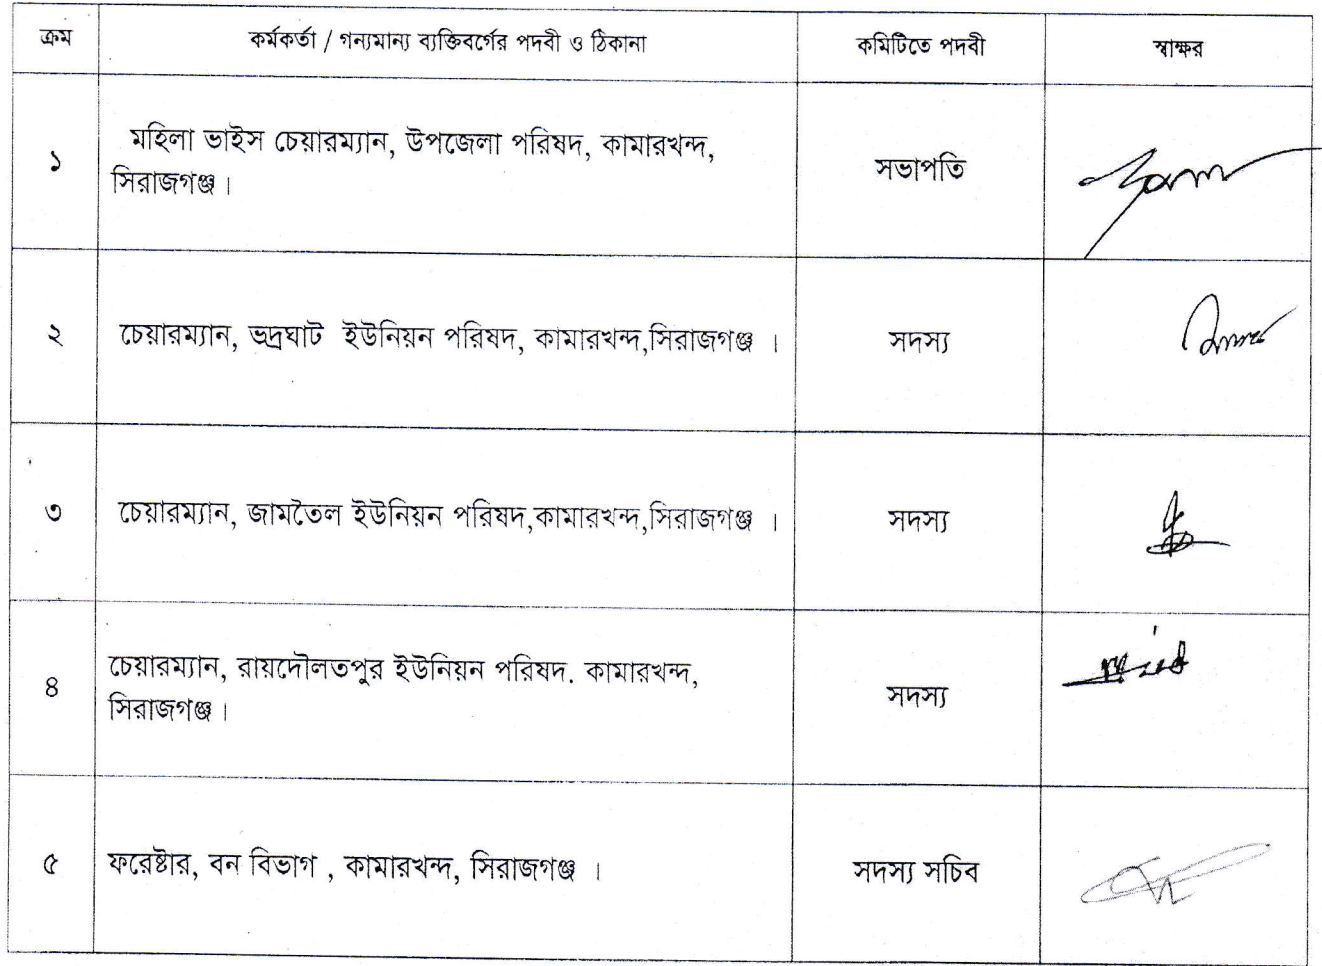 ক্রম কর্মকর্তা / গন্যমান্য ব্যক্তিবর্গের পদবী ও ঠিকানা কমিটিতে পদবী স্বাক্ষর
১ মহিলা ভাইস চেয়ারম্যান, উপজেলা পরিষদ, কামারখন্দ,
সিরাজগঞ্জ। সভাপতি
২ চেয়ারম্যান, ভদ্রঘাট ইউনিয়ন পরিষদ, কামারখন্দ,সিরাজগঞ্জ । সদস্য
৩ চেয়ারম্যান, জামতৈল ইউনিয়ন পরিষদ,কামারখন্দ,সিরাজগঞ্জ । সদস্য
৪ চেয়ারম্যান, রায়দৌলতপুর ইউনিয়ন পরিষদ. কামারখন্দ,
সিরাজগঞ্জ। সদস্য
৫ ফরেষ্টার, বন বিভাগ , কামারখন্দ, সিরাজগঞ্জ । সদস্য সচিব